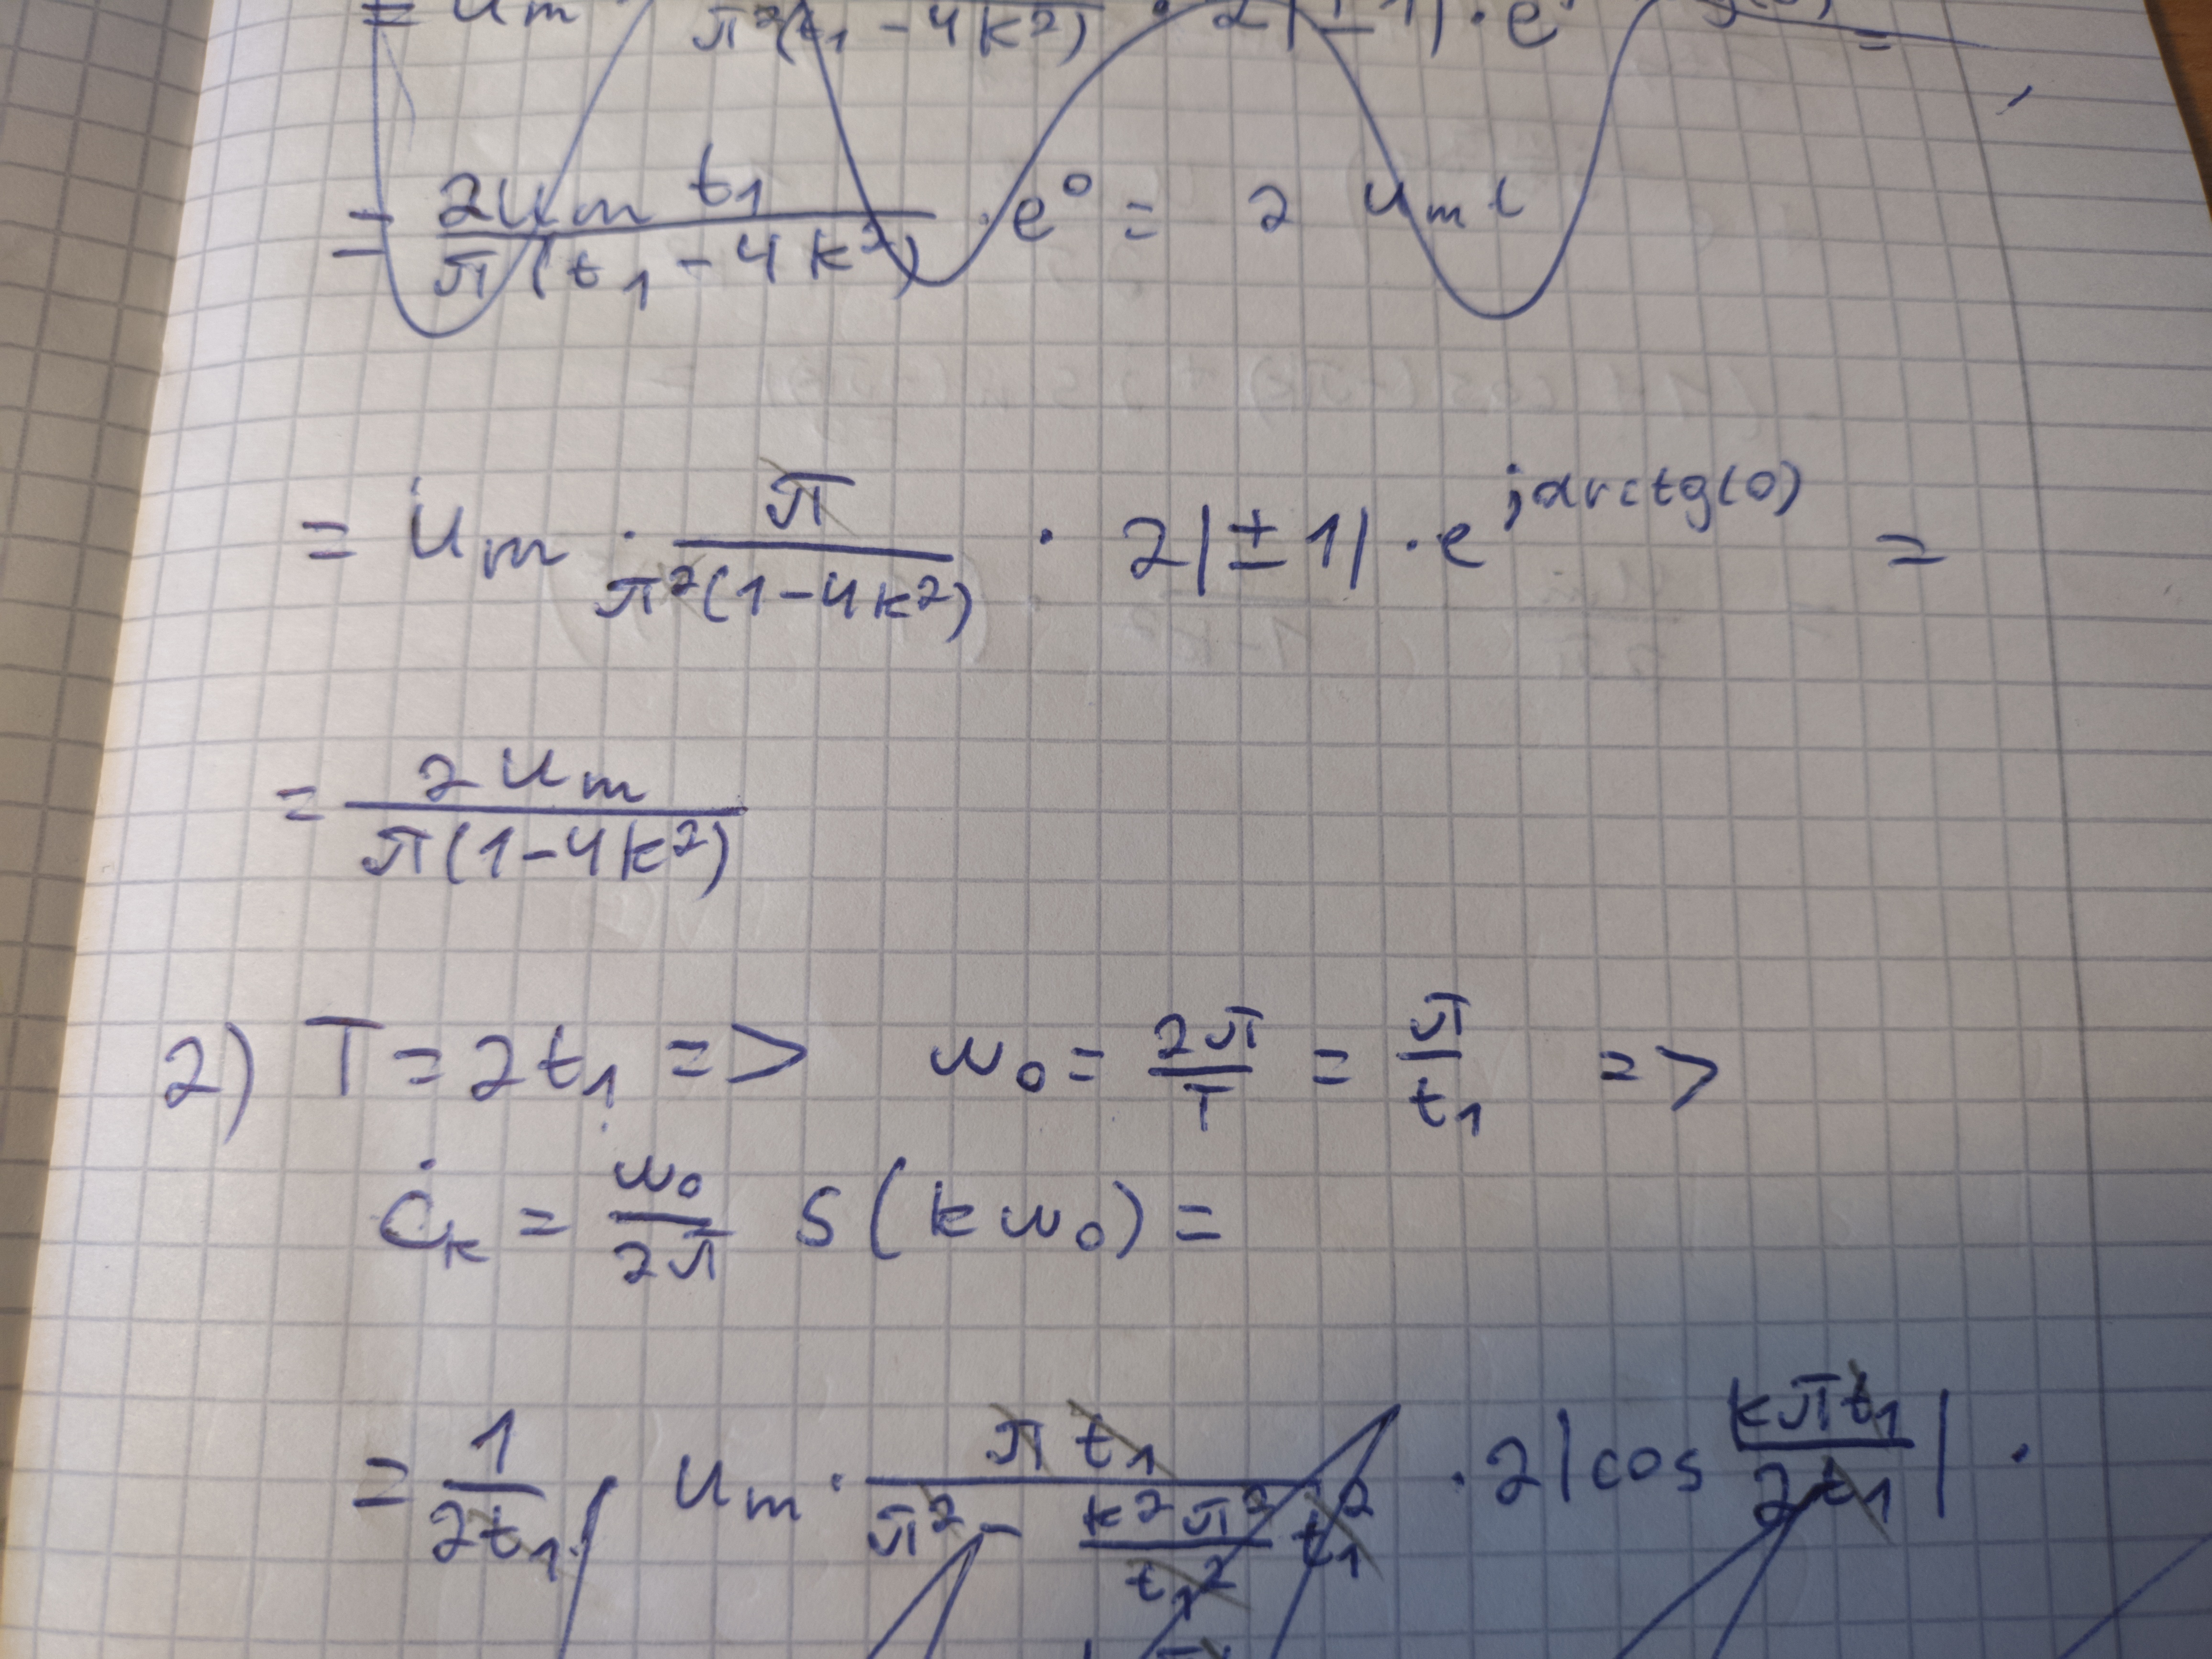 = U_m π²(t₁ - 4k²) · 2|±1| · e =
= \frac{2U_m t₁}{π(t₁ - 4k²)} · e⁰ = 2 U_m
= U̇_m · \frac{π}{π²(1-4k²)} · 2|±1| · e^{jarctg(0)} =
= \frac{2U_m}{π(1-4k²)}
2) T = 2t₁ => ω₀ = \frac{2π}{T} = \frac{π}{t₁} =>
Ċ_k = \frac{ω₀}{2π} S(kω₀) =
= \frac{1}{2t₁} U_m · \frac{π t₁}{π² - \frac{k²π²}{t₁²} t₁²} · 2|cos \frac{kπt₁}{2t₁}| ·